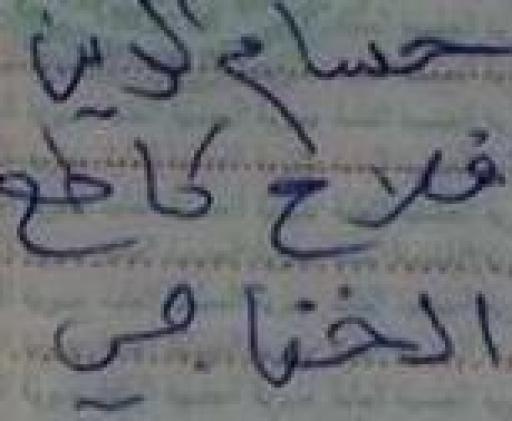 حسام الدين
فلاح كاطع
الخفاجي